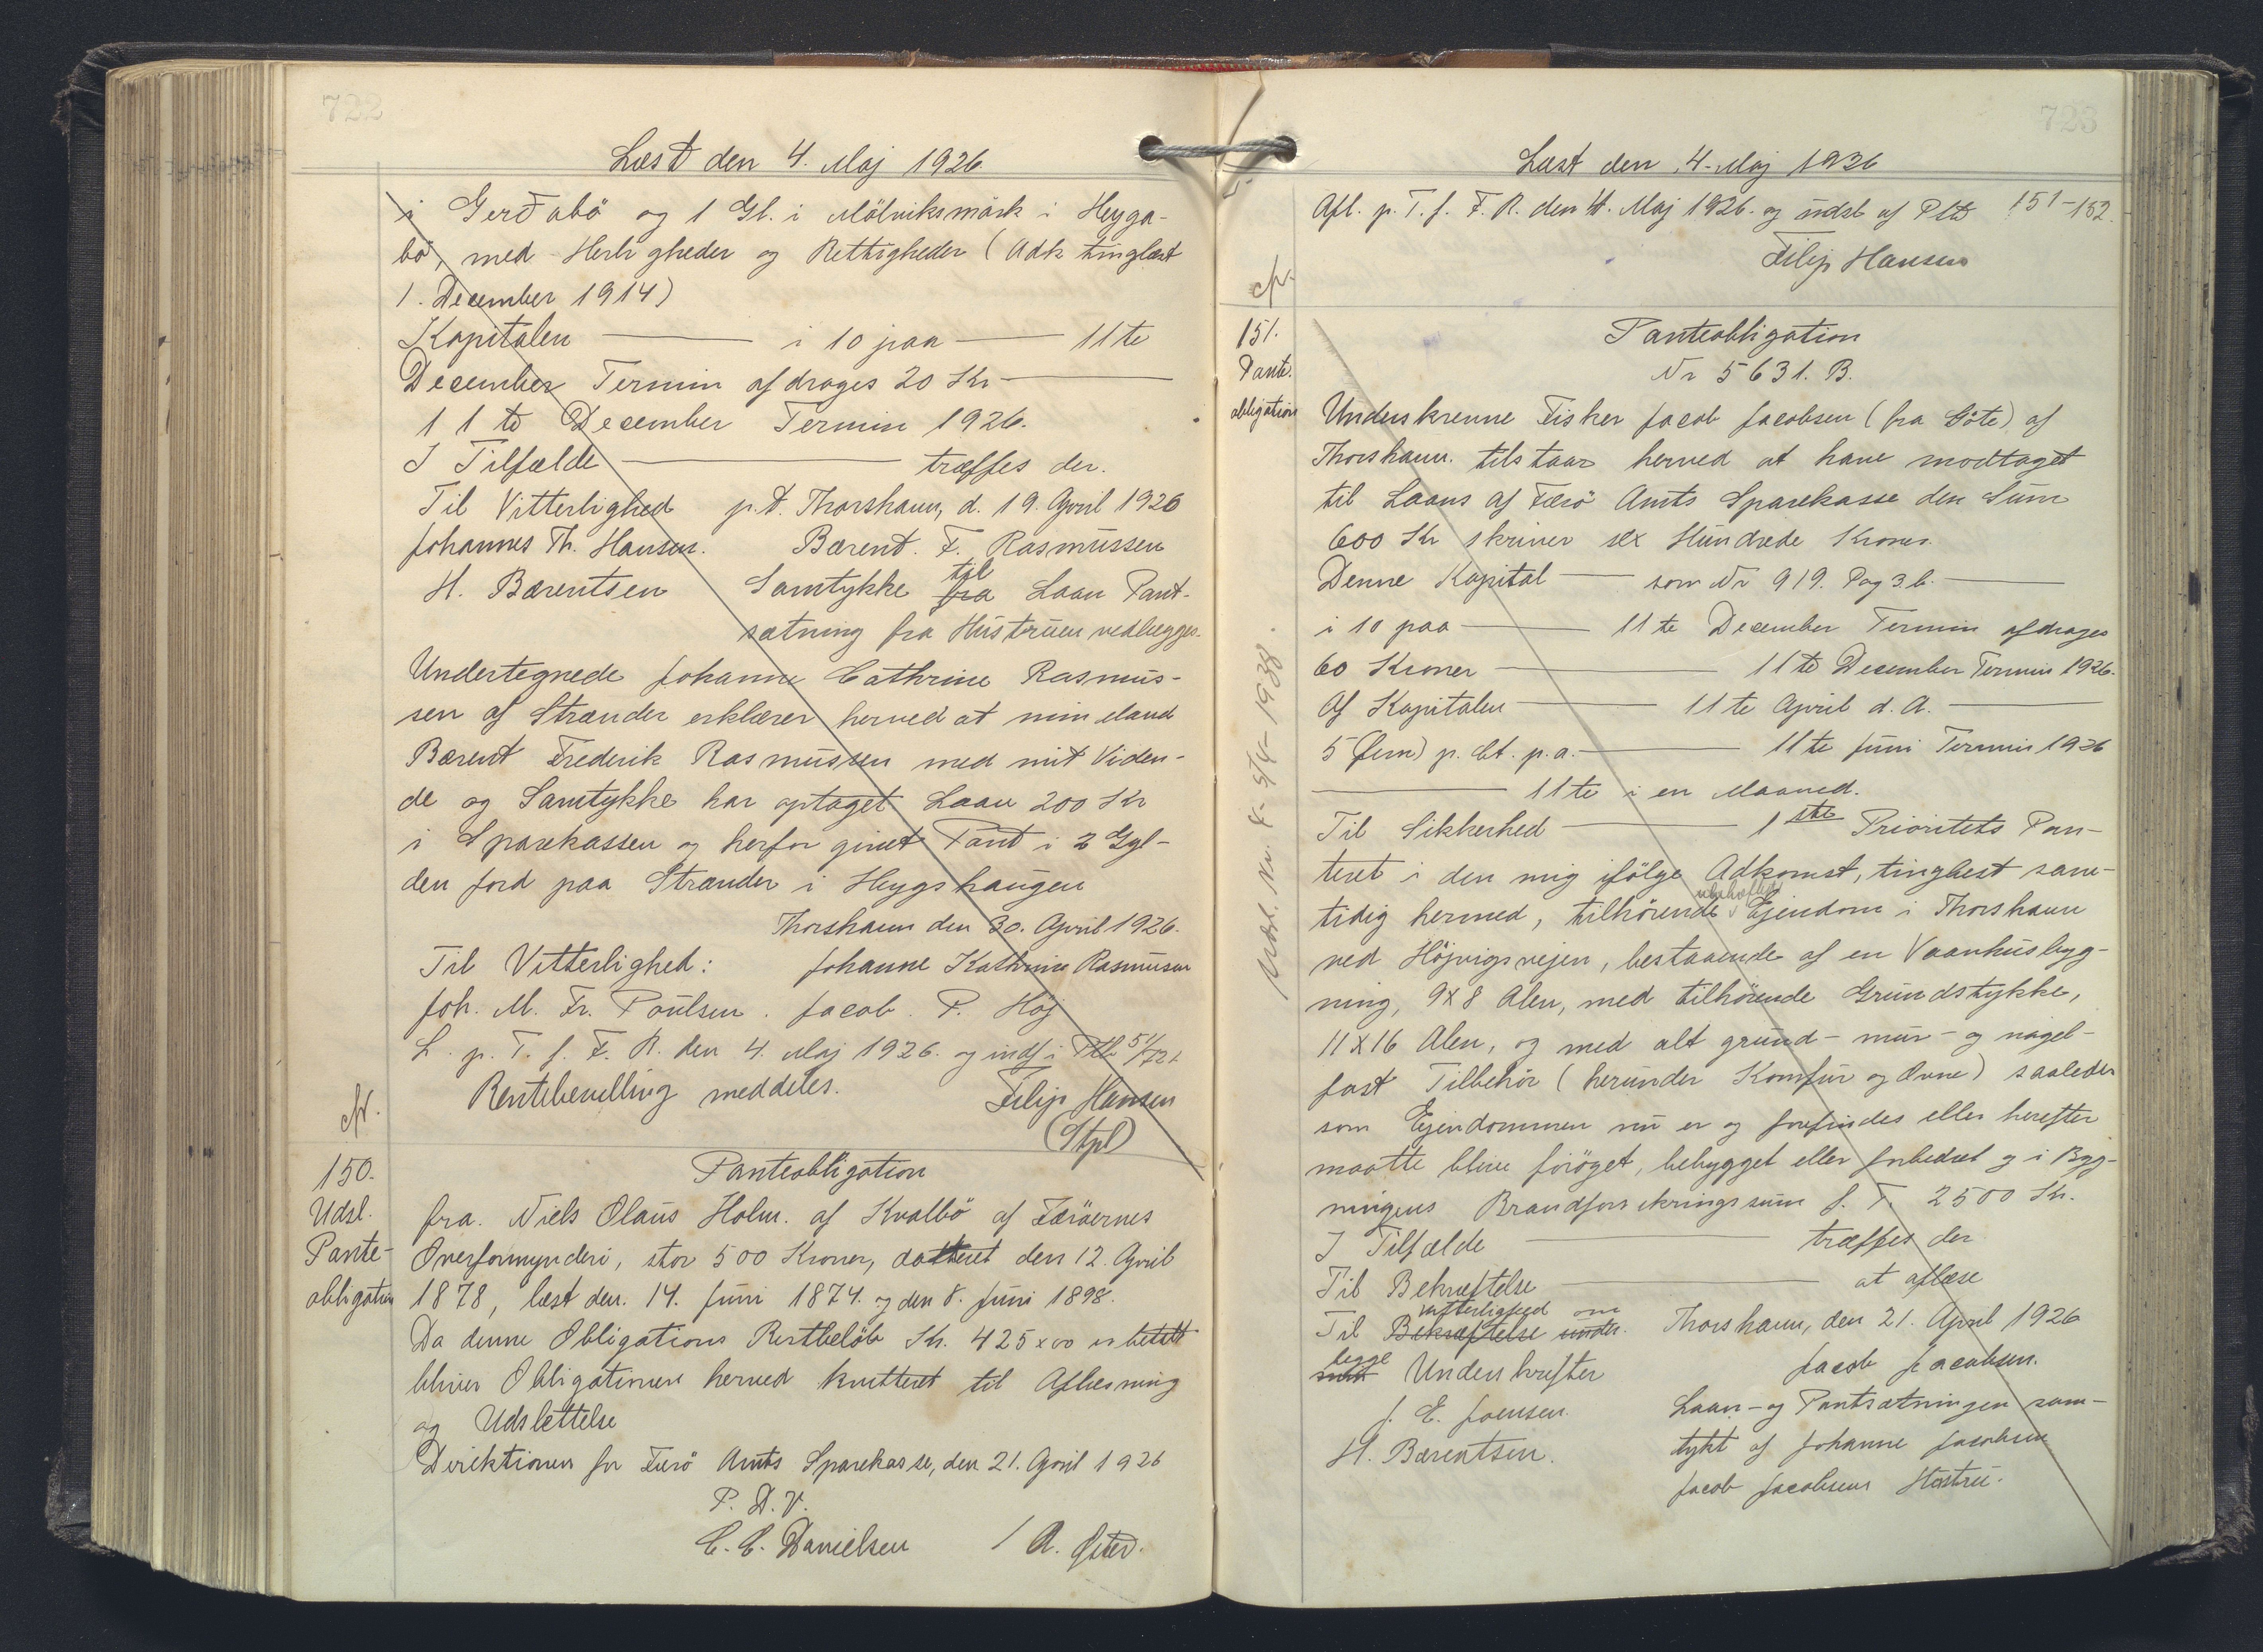 722
Læst den 4. Maj 1926
i Gerdabö og 1 Gl. i Mölviksmörk i Heyga-
bö, med Herligheder og Rettigheder (Adk tinglæst
1. December 1914)
Kapitalen — i 10 paa — 11te
December Termin afdrages 20 Kr —
11te December Termin 1926.
I Tilfælde — træffes der.
Til Vitterlighed p.t. Thorshavn, d. 19. April 1926
Johannes Th. Hansen. Bærent. F. Rasmussen
H. Bærentsen Samtykke fra til Laan Pant-
sætning fra Hustruen vedlægges.
Undertegnede Johanne Cathrine Rasmus-
sen af Strænder erklærer herved at min Mand
Bærent Frederik Rasmussen med mit Viden-
de og Samtykke har optaget Laan 200 Kr
i Sparekassen og herfor givet Pant i 2 Gyl-
den Jord paa Strænder i Heygshaugen
Thorshavn den 30. April 1926.
Til Vitterlighed: Johanne Kathrine Rasmussen
Joh. M. Fr. Poulsen. Jacob. P. Höj
L. p. T. f. F. R. den 4. Maj 1926. og indf i Ptb 51/721
Rentebevilling meddeles. Filip Hansen
(Stpl)
cfr.
150.
Udsl.
Pante-
obligation
Panteobligation
fra. Niels Olaus Holm. af Kvalbö af Færöernes
Overformynderi, stor 500 Kroner, datteret den 12. April
1878, læst den. 14. Juni 1874. og den 8. Juni 1898.
Da denne Obligations Restbelöb Kr. 425 x 00 er betalt
bliver Obligationen herved kvitteret til Aflæsning
og Udslettelse
Direktionen for Færö Amts Sparekasse, den 21. April 1926
P. D. V.
C. C. Danielsen / A.
723
Læst den 4. Maj 1926
Afl. p. T. f. F. R. den 4. Maj 1926. og udsl af Ptb 151-152.
Filip Hansen
cfr.
151.
Pante.
obligation
Panteobligation
Nr 5631. B.
Underskrevne Fisker Jacob Jacobsen (fra Göte) af
Thorshavn. tilstaar herved at have modtaget
til Laans af Færö Amts Sparekasse den Sum
600 Kr skriver sex Hundrede Kroner.
Denne Kapital — som Nr 919. Pag 3.b. —
i 10 paa — 11te December Termin afdrages
60 Kroner — 11te December Termin 1926.
Af Kapitalen — 11te April d. A. —
5 (fem) p. Ct. p. a. — 11te Juni Termin 1926
— 11te i en Maaned.
Til Sikkerhed — 1ste Prioritets Pan-
teret i den mig ifölge Adkomst, tinglæst sam-
tidig hermed, tilhörende ubehæftede Ejendom i Thorshavn
ved Höjvigsvejen, bestaaende af en Vaanhusbyg-
ning, 9 x 8 Alen, med tilhörende Grundstykke,
11 x 16 Alen, og med alt grund- mur- og nagel-
fast Tilbehör (herunder Komfur og Ovne) saaledes
som Ejendommen nu er og forefindes eller herefter
maatte blive foröget, bebygget eller forbedret og i Byg-
ningens Brandforsikringssum f. T. 2500 Kr.
I Tilfælde — træffes der
Til Bekræftelse — at aflæse
Til Bekræftelse under. vitterlighed om Thorshavn, den 21. April 1926
begge Underskrifter Jacob Jacobsen.
J. E. Joensen. Laan- og Pantsætningen sam-
H. Bærentsen. tykt af Johanne Jacobsen
Jacob Jacobsens Hustru.
Udsl. Nr. 8- 5/4- 1938.